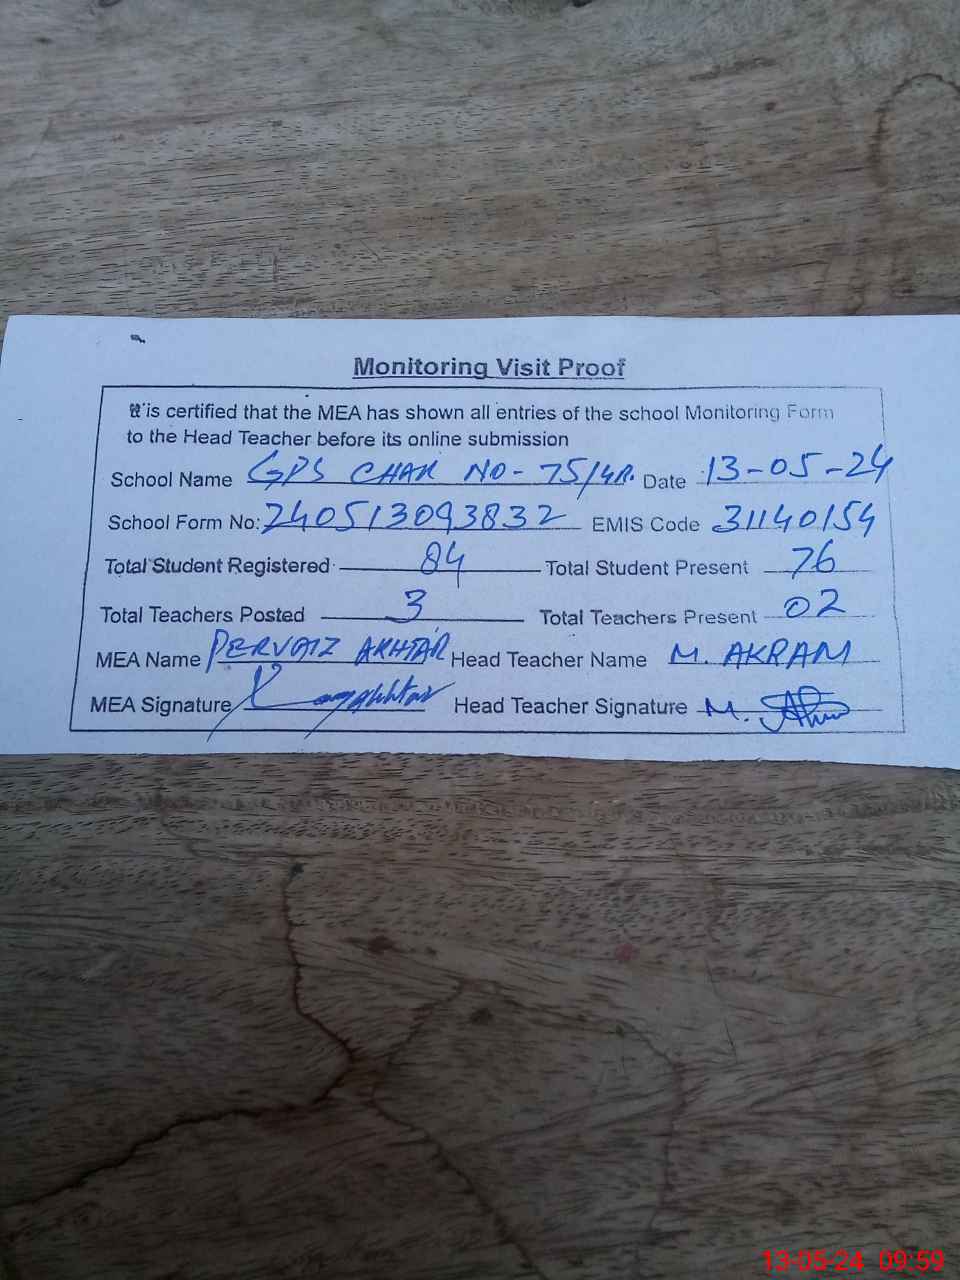 Monitoring Visit Proof
It is certified that the MEA has shown all entries of the school Monitoring Form
to the Head Teacher before its online submission
School Name GPS CHAK NO- 75/4R. Date 13-05-24
School Form No: 240513093832 EMIS Code 31140154
Total Student Registered 84 Total Student Present 76
Total Teachers Posted 3 Total Teachers Present 02
MEA Name PERVAIZ AKHTAR Head Teacher Name M. AKRAM
MEA Signature Head Teacher Signature M.
13-05-24 09:59